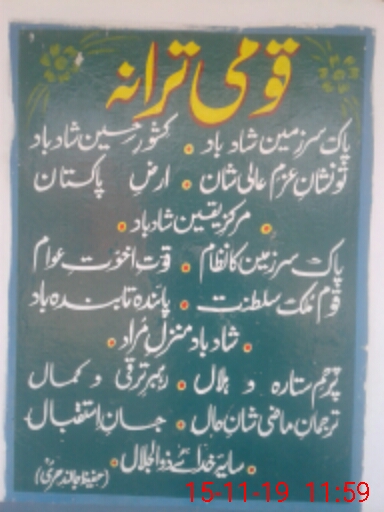 قومی ترانہ
پاک سرزمین شاد باد • کشور حسین شاد باد
تو نشانِ عزم عالی شان • ارضِ پاکستان
• مرکز یقین شاد باد •
پاک سرزمین کا نظام • قوتِ اخوتِ عوام
قوم ملک سلطنت • پائندہ تابندہ باد
• شاد باد منزلِ مُراد •
پرچم ستارہ و ہلال • رہبر ترقی و کمال
ترجمان ماضی شانِ حال • جانِ استقبال
• سایۂ خدائے ذوالجلال •
(حفیظ جالندھریؒ)
15-11-19 11:59